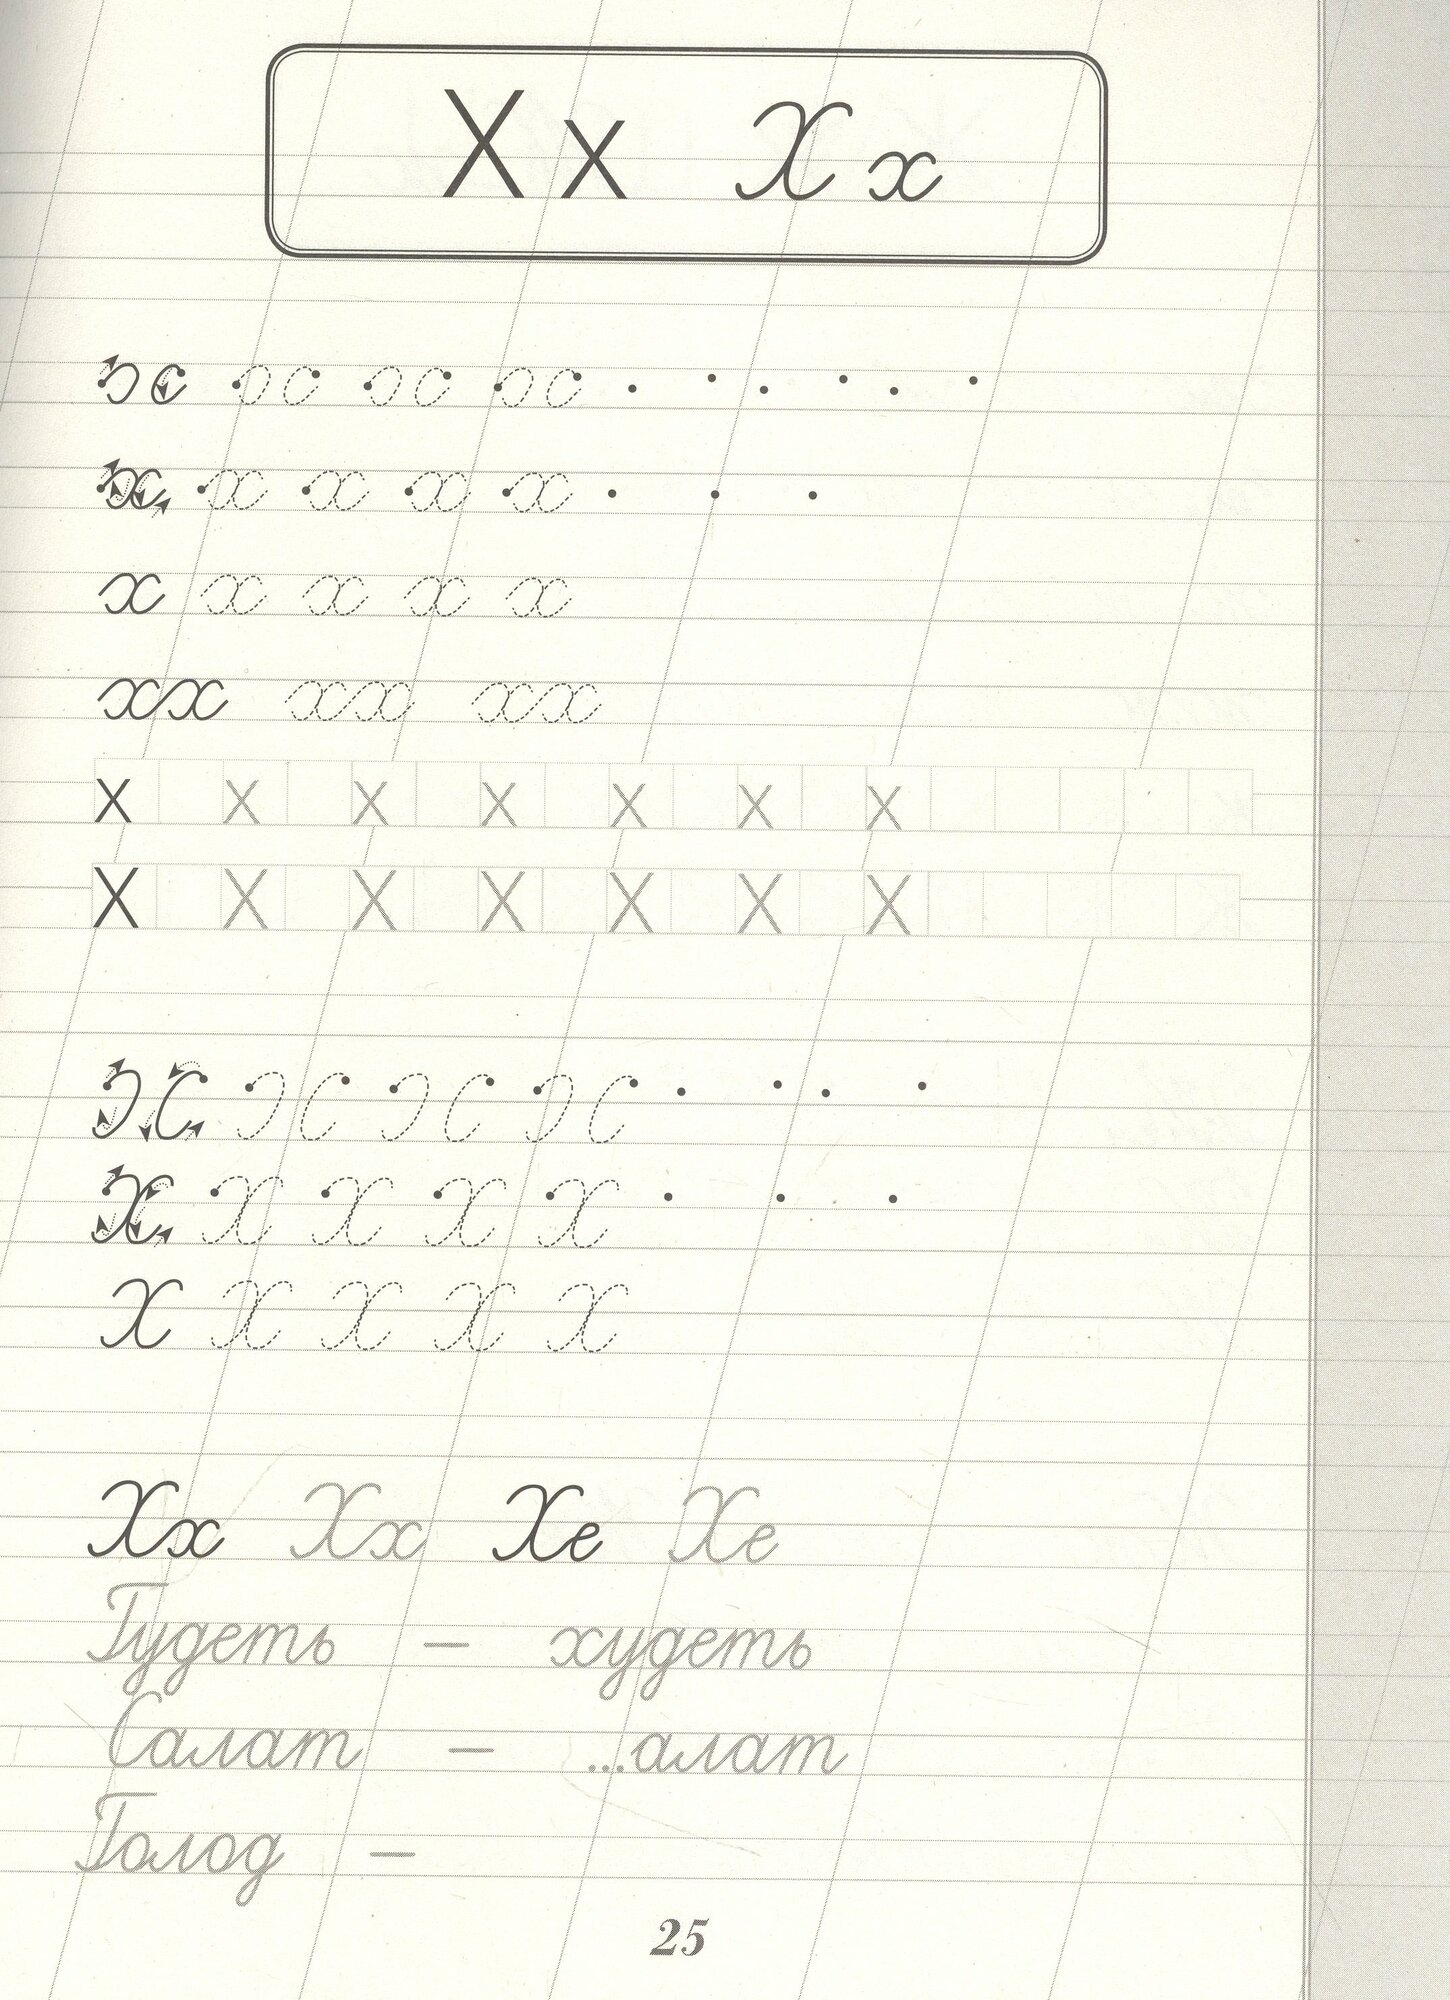 Х х Х х
х х х х х
х х х х х
хх хх хх
х х х х х х х
Х Х Х Х Х Х Х
Х Х Х Х Х
Х Х Х Х Х
Хх Хх Хе Хе
Гудеть – худеть
Салат – ...алат
Голод –
25